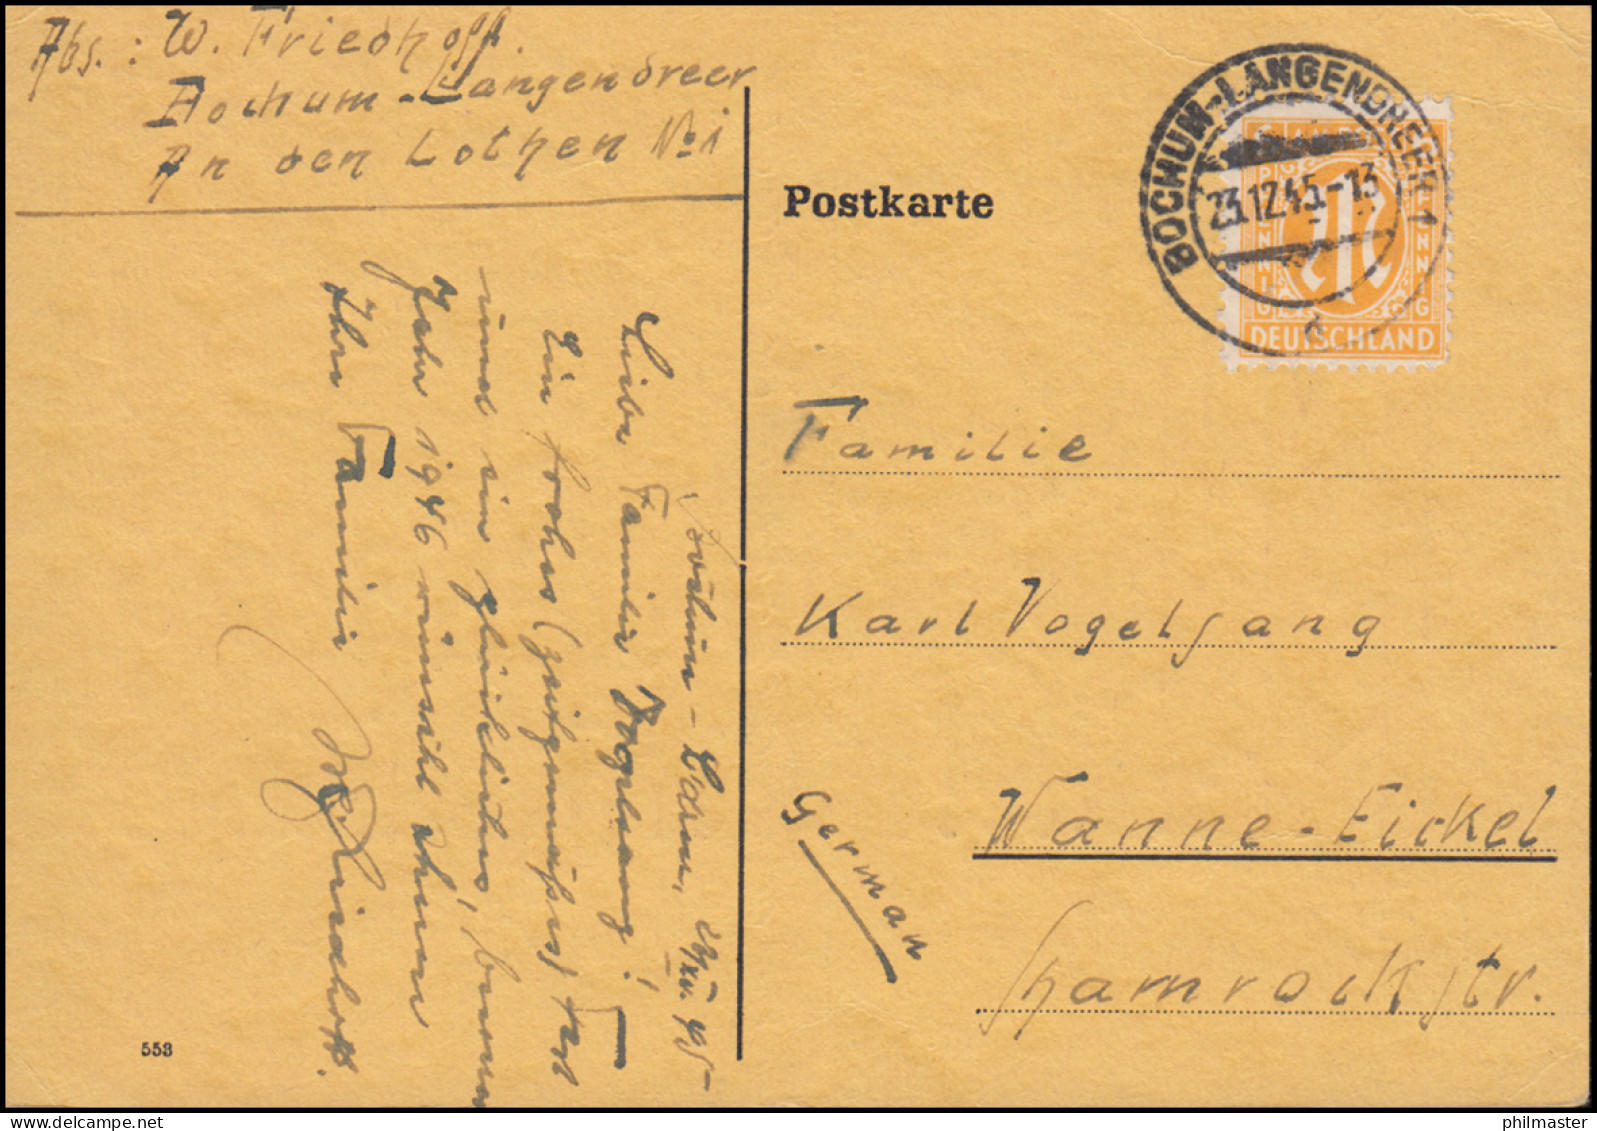 Abs.: W. Friedhoff.
Bochum-Langendreer
An den Lothen No 1
Postkarte
BOCHUM-LANGENDREER 1
23.12.45.-13
PFENNIG
PFENNIG
DEUTSCHLAND
Familie
Karl Vogelsang
Wanne-Eickel
Shamrockstr.
German
XII. 45
Liebe Familie Vogelsang!
Ein frohes (zeitgemäßes) Fest
und ein glückliches, besseres
Jahr 1946 wünscht Ihnen
Ihre Familie
W. Friedhoff.
553
philmaster